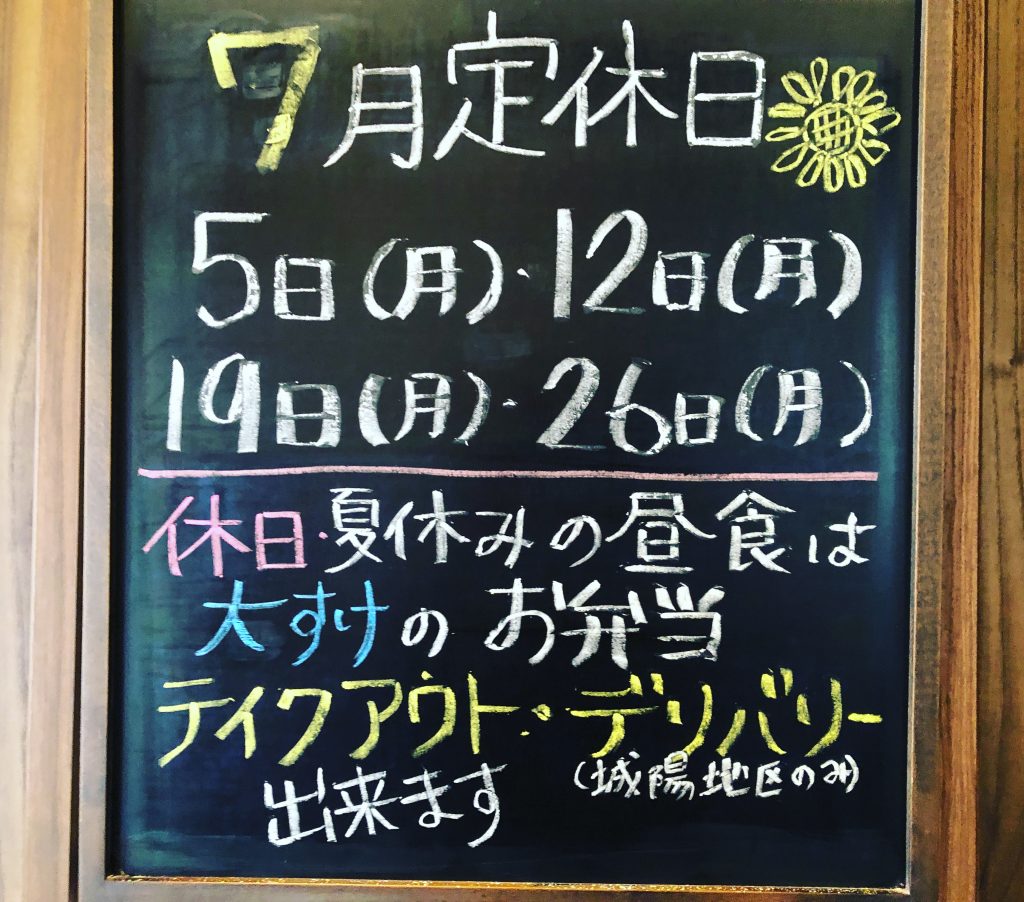 7月定休日
5日(月)・12日(月)
19日(月)・26日(月)
休日・夏休みの昼食は
大すけのお弁当
テイクアウト・デリバリー
(城陽地区のみ)
出来ます